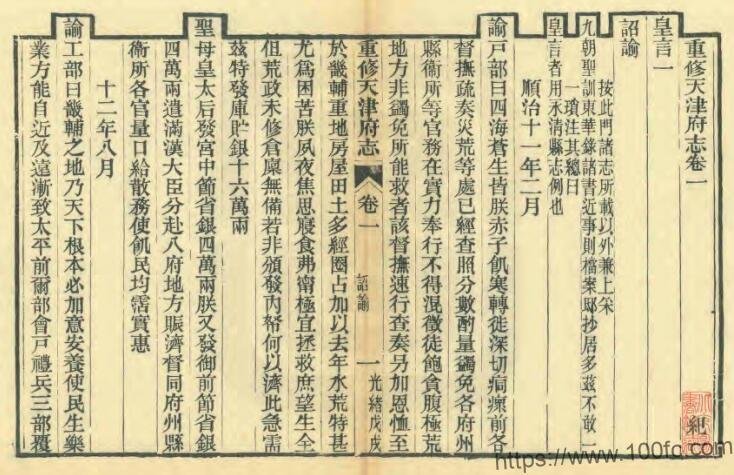 重修天津府志卷一
紀一
皇言一
詔諭
按此門諸志所載以外兼上采
九朝聖訓東華錄諸書近事則檔案邸抄居多茲不敢一
一項注其總曰
皇言者用永清縣志例也
順治十一年二月
諭戸部曰四海蒼生皆朕赤子飢寒轉徙深切痌瘝前各
督撫疏奏災荒等處已經查照分數酌量蠲免各府州
縣衞所等官務在實力奉行不得混徵徒飽貪腹極荒
地方非蠲免所能救者該督撫速行查奏另加恩恤至
重修天津府志
卷一
詔諭
一
光緒戊戌
於畿輔重地房屋田土多經圈占加以去年水荒特甚
尤爲困苦朕夙夜焦思寢食弗甯極宜拯救庶望生全
但荒政未修倉廩無備若非頒發內帑何以濟此急需
茲特發庫貯銀十六萬兩
聖母皇太后發宮中節省銀四萬兩朕又發御前節省銀
四萬兩遣滿漢大臣分赴八府地方賑濟督同府州縣
衞所各官量口給散務使飢民均霑實惠
十二年八月
諭工部曰畿輔之地乃天下根本必加意安養使民生樂
業方能自近及遠漸致太平前爾部會戸禮兵三部覆
https://www.100fc.com